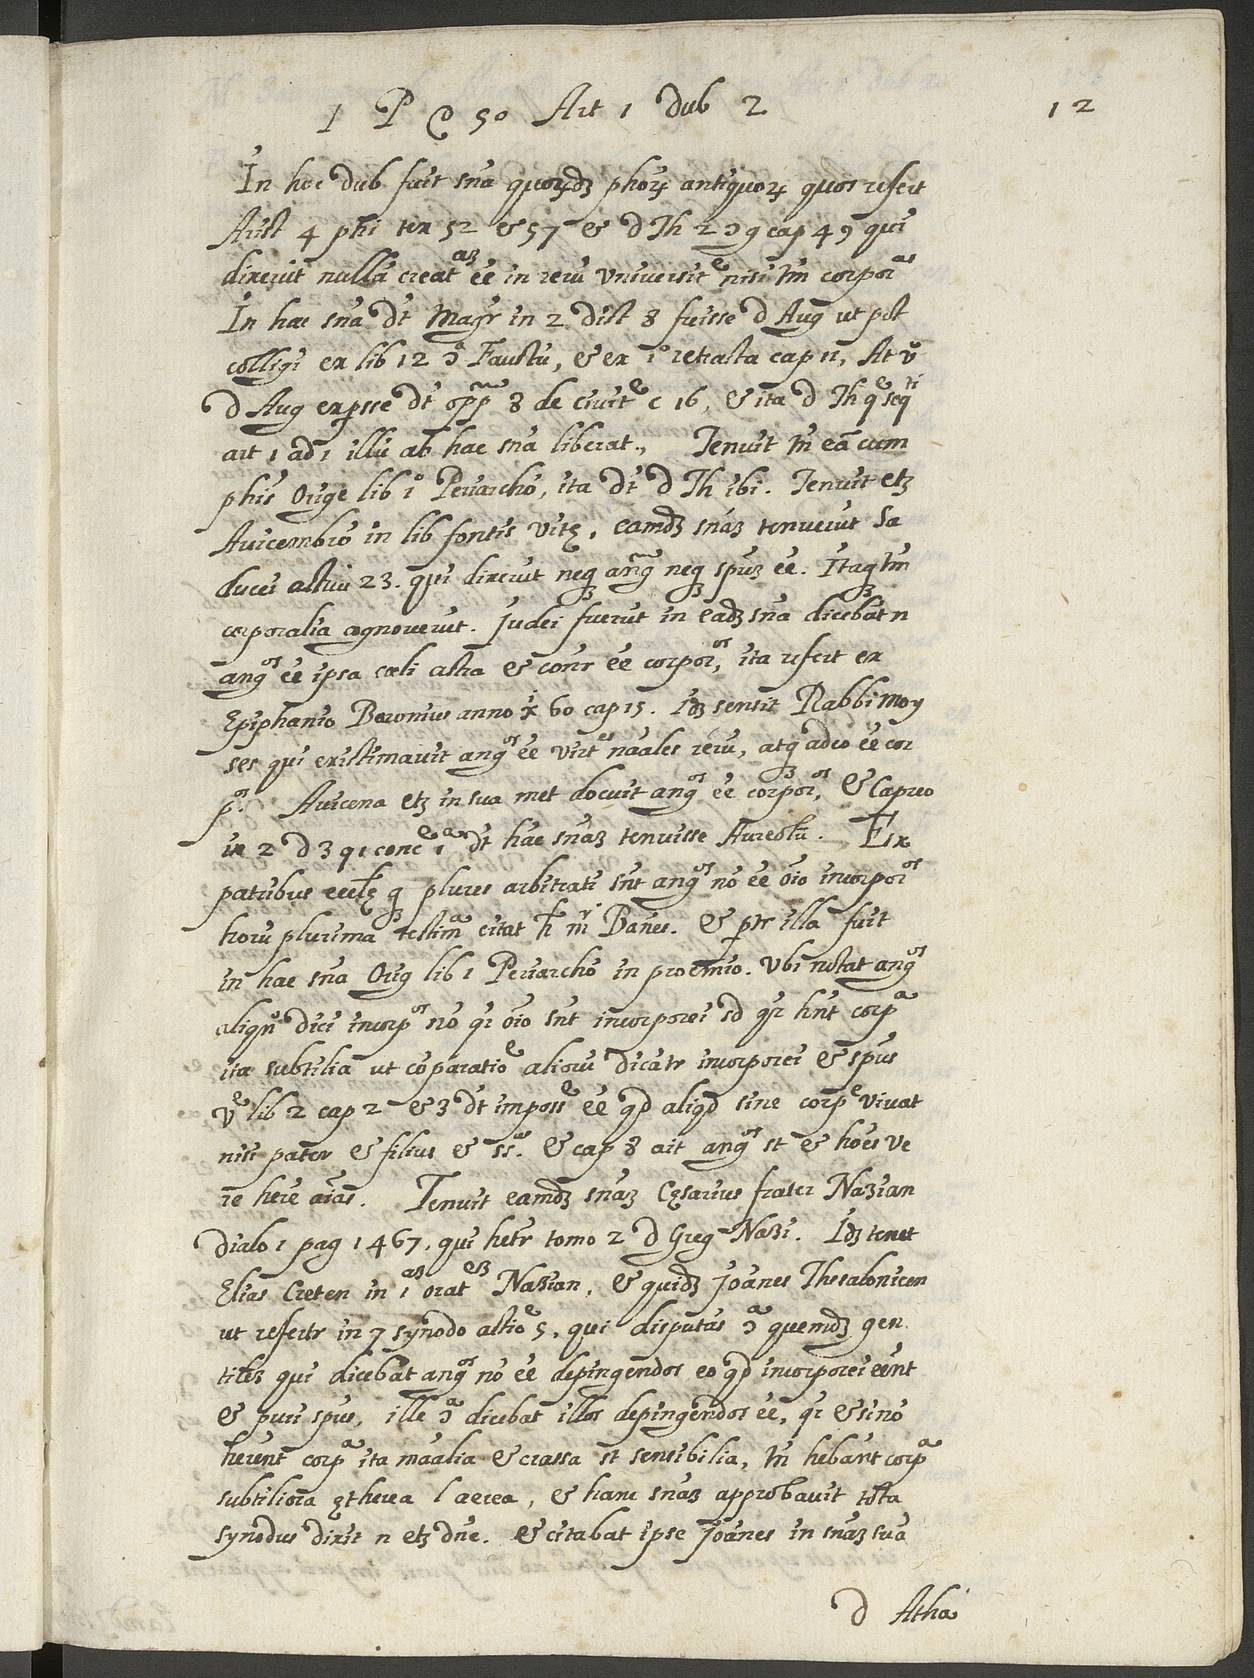 1 P Q 50 Art 1 dub 2
12
In hoc dub fuit sñа quorūdʒ phorū antiquorū quos refert
Arist 4 phi tex 52 & 57 & D Th 2 ɔ g cap 49 qui
dixerūt nullā creat^aʒ eē in rerū vniversit^e nisi tm̄ corpor^as
In hac sña dt̄ Magr in 2 dist 8 fuisse D Aug ut pōt
colligi ex lib 12 ɔ^a Faustū, & ex 1° retracta cap 11, At v°
D Aug expsse dt̄ opp^m 8 de civit^e c 16, & ita D Th q^e seq^ti
art 1 ad 1 illū ab hac sña liberat., Tenuit tn̄ eā cum
phis Orige lib 1° Periarchō, ita dt̄ D Th ibi. Tenuit etʒ
Avicembrō in lib fontis vitę, eamdʒ sñaʒ tenuerūt Sa
ducei actuū 23. qui dixerūt neqʒ ang^m neqʒ spūʒ eē. Itaqʒ tm̄
corporalia agnoverūt. Judei fuerūt in eadʒ sña dicebāt n
ang^os eē ipsa cœli astra & conr eē corpor^os, ita refert ex
Epiphanio Baronius anno x̄ 60 cap 15. Idʒ sensit Rabbi Moy
ses qui existimavit ang^os eē virt^es nāales rerū, atqʒ adeo eē cor
p^os. Avicena etʒ in sua met docuit ang^os eē corpor^os, & Capreo
in 2 D 3 q 1 conc^e 1^a dt̄ hāc sñaʒ tenuisse Aureolū. Ex
patribus eccl̄ę qʒ plures arbitrati sn̄t ang^os nō eē oīo incorpor^os
horū plurima testim^a citat h̄ m^r Bañes. & pr̄ illa fuit
in hac sña Orig lib 1 Periarchō in proemio. Vbi notat ang^os
aliqn̄ dici incorp^os nō qr̄ oīo sn̄t incorporei sd qr̄ hn̄t corp^a
ita subtilia ut cōparatio^e aliorū dicātr incorporei & spūs
v^e lib 2 cap 2 & 3 dt̄ imposs^e eē qd̄ aliqd̄ sine corp^e vivat
nisi pater & filius & ss^us. & cap 8 ait ang^os st & hoēs ve
re hēre aīas. Tenuit eamdʒ sñaʒ Cęsarius frater Naʒian
dialo 1 pag 1467. qui hētr tomo 2 D Greg Naʒi. Idʒ tenet
Elias Creten in 1^aʒ orat^eʒ Naʒian, & quidʒ Joānes Thesalonicen
ut refertr in 7 synodo actio^e 5, qui disputās ɔ^a quemdʒ gen
tileʒ qui dicebat ang^os nō eē depingendos eo qd̄ incorporei eēnt
& puri spūs, ille ɔ^a dicebat illos depingendos eē, qr̄ & si nō
hērent corp^a ita māalia & crassa st sensibilia, tn̄ hēbānt corp^a
subtiliora ętherea l aerea, & hanc sñaʒ approbavit tōta
synodus dixit n etʒ dn̄e. & citabat ipse Joānes in sñaʒ suā
D Atha